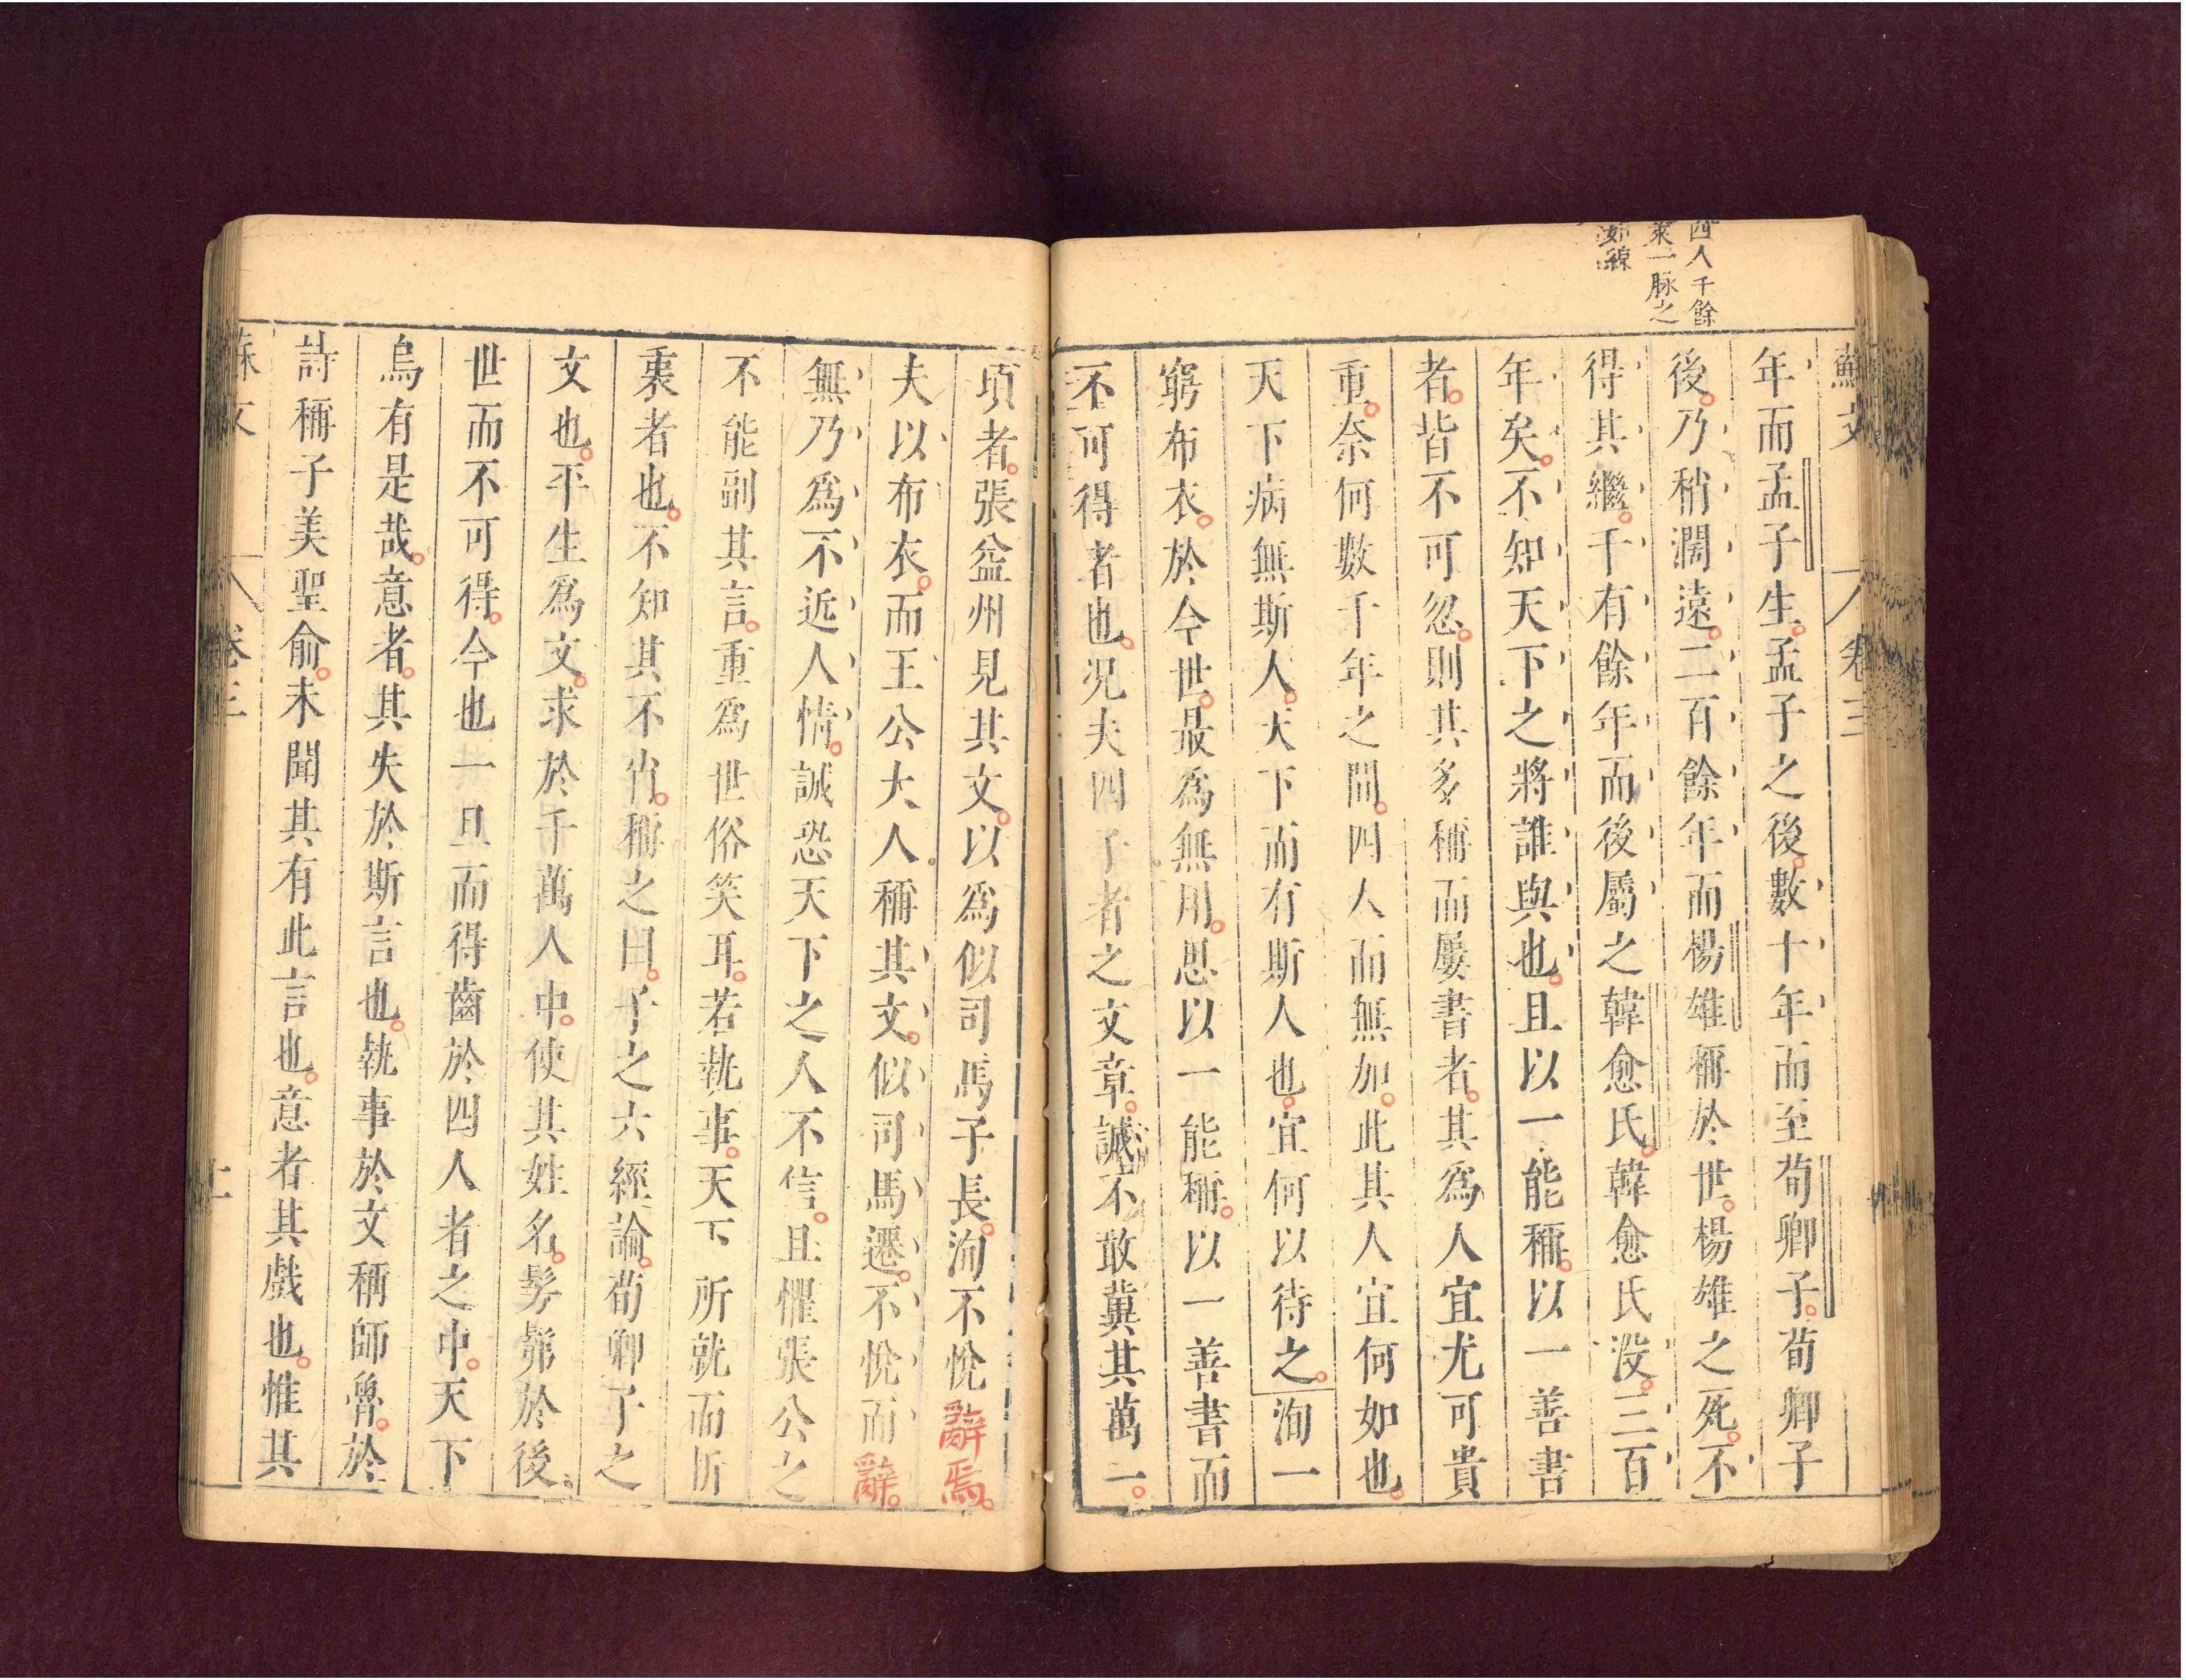 四人千餘
來一脉之
如線
蘇文 卷三
年而孟子生孟子之後數十年而至荀卿子荀卿子
後乃稍濶遠二百餘年而楊雄稱於世楊雄之死不
得其繼千有餘年而後屬之韓愈氏韓愈氏沒三百
年矣不知天下之將誰與也且以一能稱以一善書
者皆不可忽則其多稱而屢書者其爲人宜尤可貴
重奈何數千年之間四人而無加此其人宜何如也
天下病無斯人天下而有斯人也宜何以待之洵一
窮布衣於今世最爲無用思以一能稱以一善書而
不可得者也况夫四子者之文章誠不敢冀其萬一
頃者張益州見其文以爲似司馬子長洵不悅辭焉
夫以布衣而王公大人稱其文似司馬遷不悅而辭
無乃爲不近人情誠恐天下之人不信且懼張公之
不能副其言重爲世俗笑耳若執事天下所就而折
衷者也不知其不肖稱之曰子之六經論荀卿子之
文也平生爲文求於千萬人中使其姓名髣髴於後
世而不可得今也一旦而得齒於四人者之中天下
烏有是哉意者其失於斯言也執事於文稱師魯於
詩稱子美聖俞未聞其有此言也意者其戲也惟其
蘇文 卷三